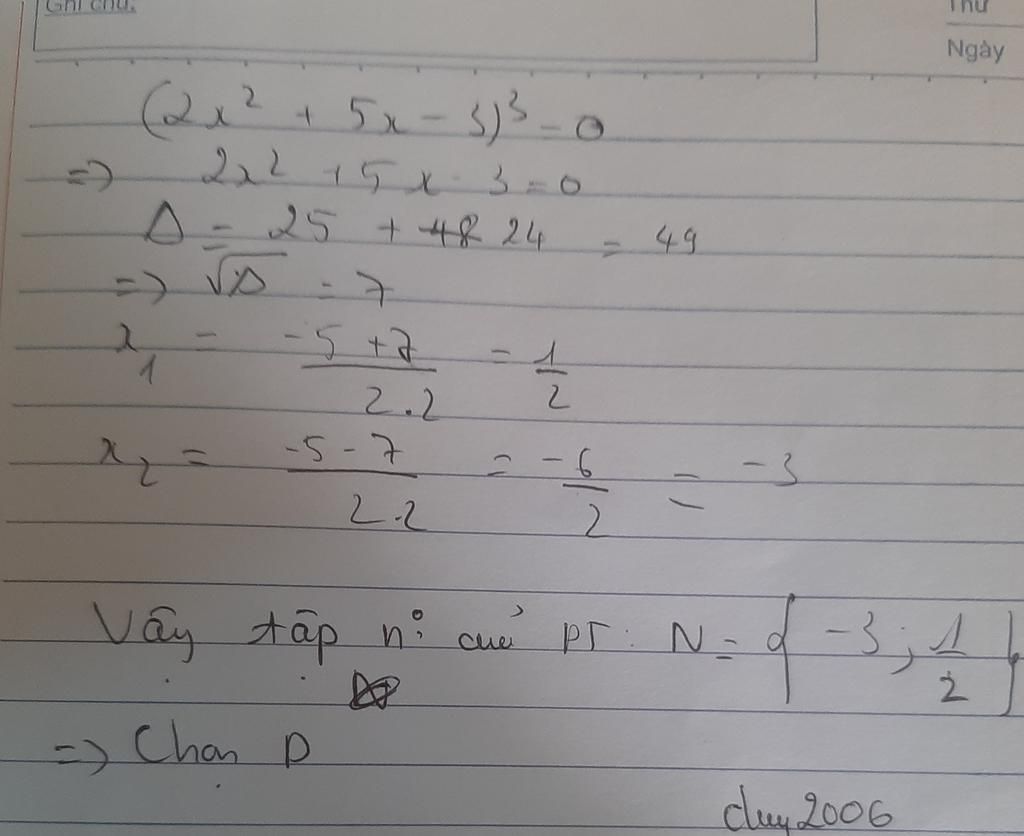 Ghi chú:
Thứ
Ngày
(2x² + 5x - 3)³ = 0
=> 2x² + 5x - 3 = 0
Δ = 25 + 48 24 = 49
=> √Δ = 7
x₁ = (-5 + 7)/(2.2) = 1/2
x₂ = (-5 - 7)/(2.2) = -6/2 = -3
Vậy tập n° của PT: N = { -3 ; 1/2 }
=> Chọn D
duy2006